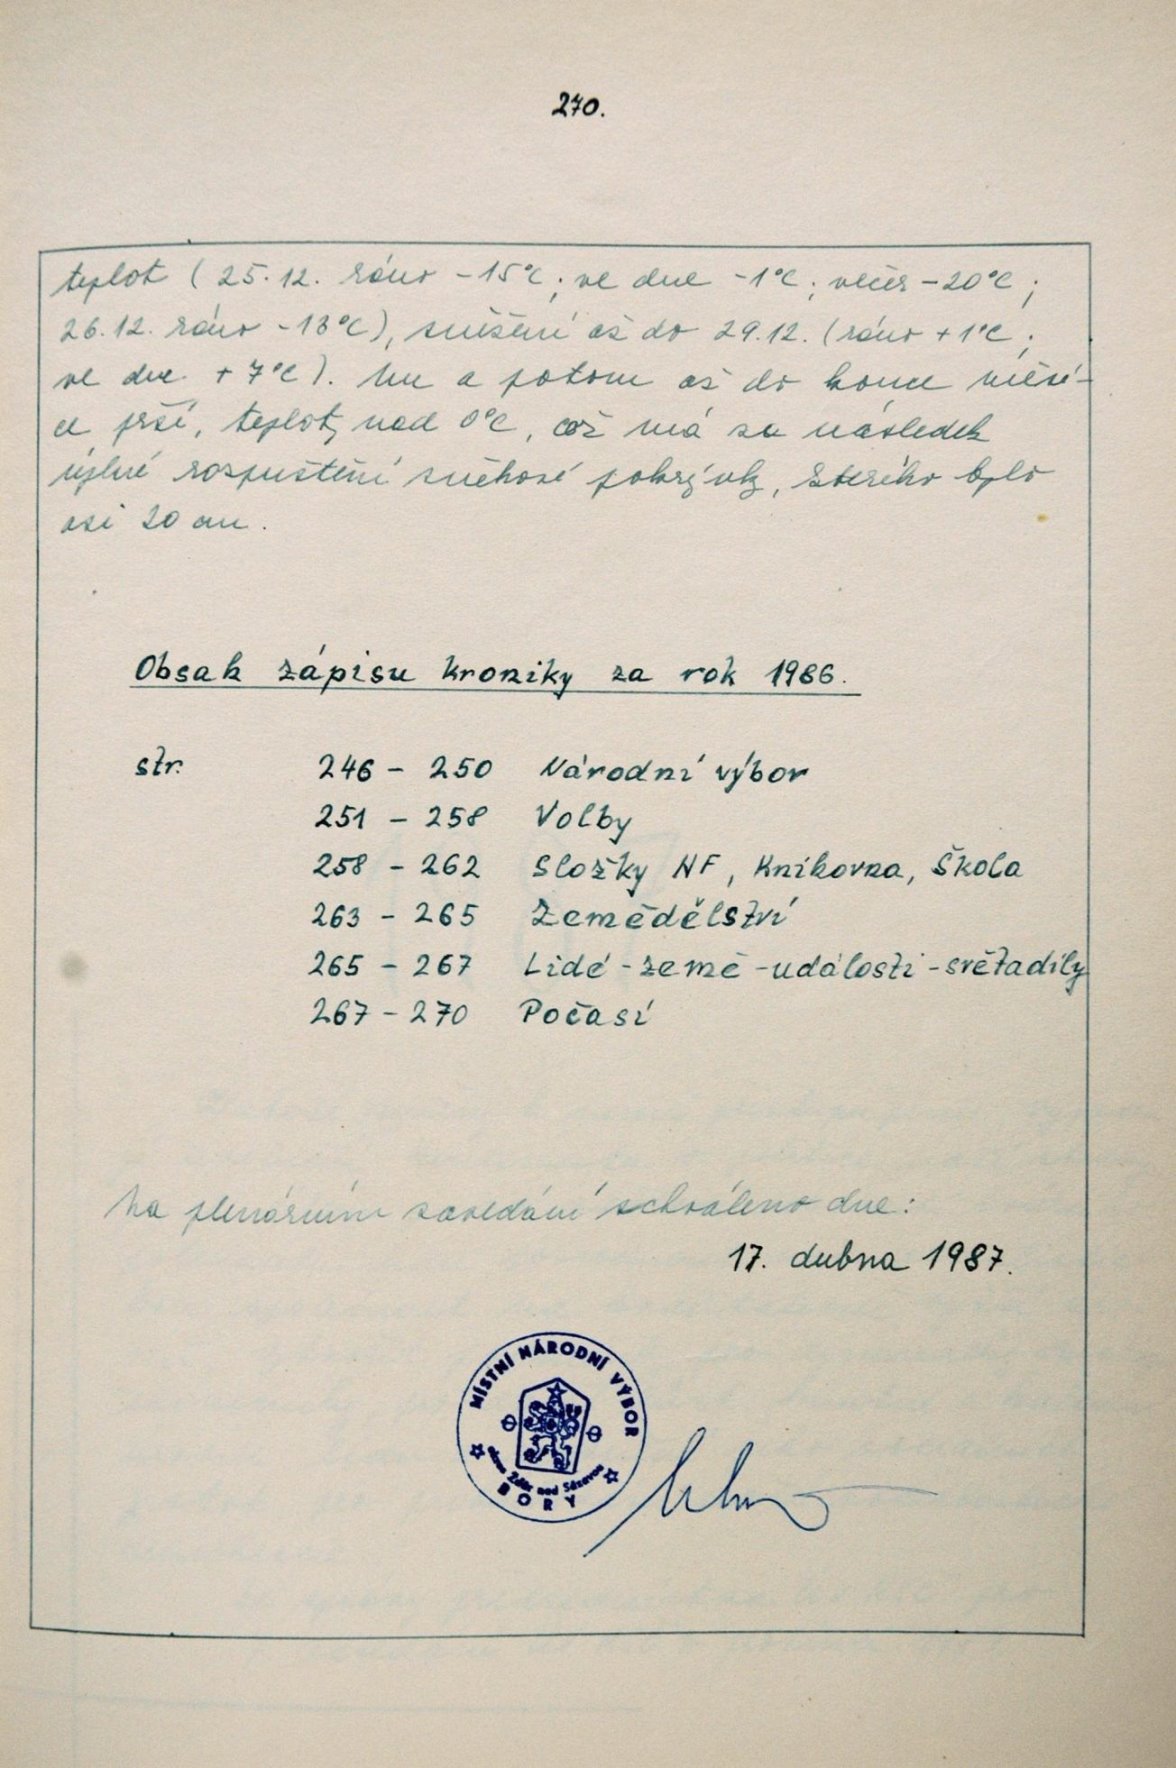 270.
teplot (25.12. ráno -15°C; ve dne -1°C; večer -20°C;
26.12. ráno -13°C), sněžení až do 29.12. (ráno +1°C;
ve dne +7°C). Tu a potom až do konce měsí-
ce prší, teploty nad 0°C, což má za následek
úplné rozpuštění sněhové pokrývky, kterého bylo
asi 20 cm.
Obsah zápisu kroniky za rok 1986.
str. 246 - 250 Národní výbor
251 - 258 Volby
258 - 262 Složky NF, Knihovna, Škola
263 - 265 Zemědělství
265 - 267 Lidé - země - události - světadíly
267 - 270 Počasí
Na plenárním zasedání schváleno dne:
17. dubna 1987.
MÍSTNÍ NÁRODNÍ VÝBOR
okres Žďár nad Sázavou
BORY